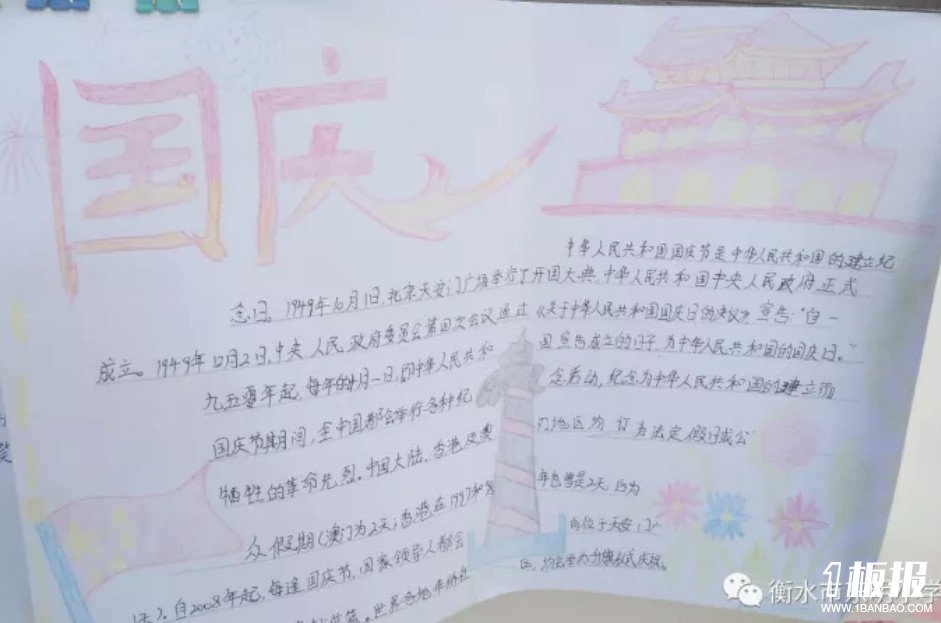 国庆
中华人民共和国国庆节是中华人民共和国的建立纪
念日。1949年10月1日,北京天安门广场举行了开国大典,中华人民共和国中央人民政府正式
成立。1949年12月2日,中央人民政府委员会第四次会议通过《关于中华人民共和国国庆日的决议》,宣告:"自一
九五零年起,每年的十月一日,即中华人民共和国宣告成立的日子,为中华人民共和国的国庆日。"
国庆节期间,全中国都会举行各种纪念活动,纪念为中华人民共和国的建立而
牺牲的革命先烈。中国大陆、香港及澳门地区均订为法定假日或公
众假期(澳门为2天;香港在1997和 年也曾是2天,后为
1天)。自2003年起,每逢国庆节,国家领导人都会向位于天安门广
区,均会举 升旗仪式庆祝。
世界各地
衡水市 小学
1板报
WWW.1BANBAO.COM